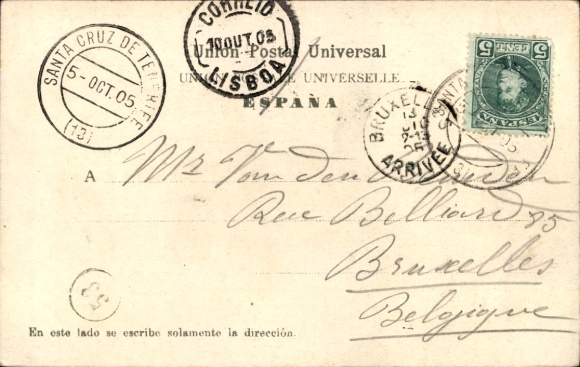 CORREIO
10 OUT. 05
LISBOA
SANTA CRUZ DE TENERIFE
5-OCT.05
(13)
Union Postal Universal
UNION POSTALE UNIVERSELLE
ESPAÑA
5 CENT 5
ESPAÑA
BRUXELLES
13
ARRIVÉE
SANTA
A Mr Van den
Rue Belliard 85
Bruxelles
Belgique
53
En este lado se escribe solamente la dirección.